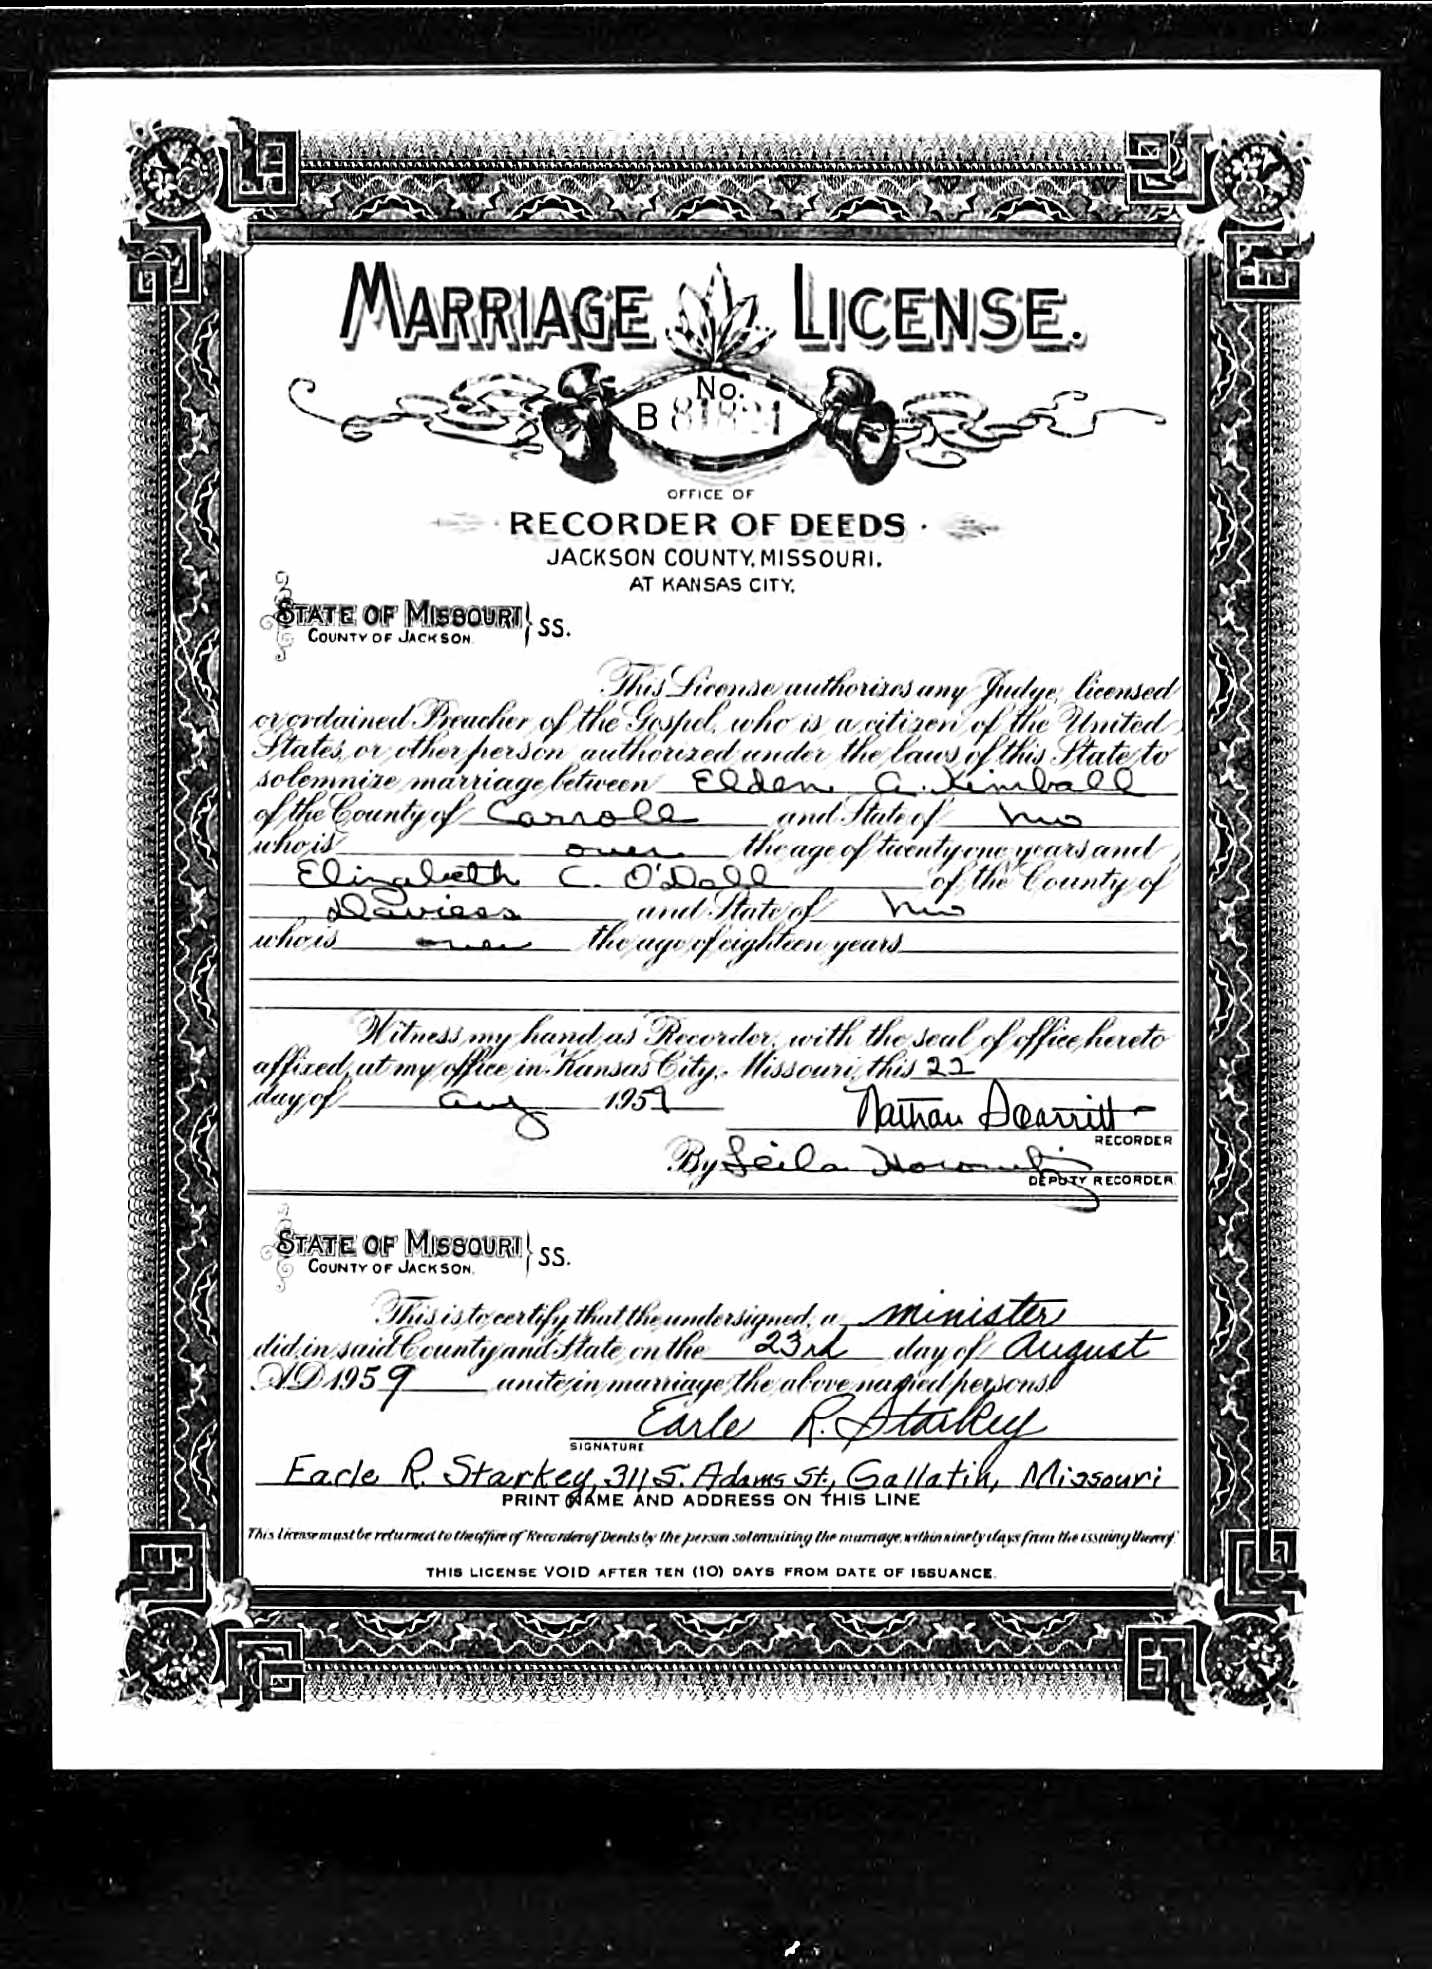 MARRIAGE LICENSE.
No.
B 81821
OFFICE OF
RECORDER OF DEEDS
JACKSON COUNTY, MISSOURI.
AT KANSAS CITY.
STATE OF MISSOURI } SS.
COUNTY OF JACKSON.
This License authorizes any Judge, licensed
or ordained Preacher of the Gospel, who is a citizen of the United
States, or other person authorized under the laws of this State to
solemnize marriage between Elden A. Kimball
of the County of Carroll and State of Mo
who is over the age of twenty one years and
Elizabeth C. O'Dell of the County of
Daviess and State of Mo
who is over the age of eighteen years
Witness my hand as Recorder, with the seal of office hereto
affixed, at my office in Kansas City, Missouri, this 22
day of Aug 1959
Nathan Scarritt
RECORDER
By Leila
DEPUTY RECORDER
STATE OF MISSOURI } SS.
COUNTY OF JACKSON.
This is to certify that the undersigned, a minister
did in said County and State on the 23rd day of August
A.D. 1959 unite in marriage the above named persons.
Earle R. Starkey
SIGNATURE
Earle R. Starkey, 311 S. Adams St., Gallatin, Missouri
PRINT NAME AND ADDRESS ON THIS LINE
This license must be returned to the office of Recorder of Deeds by the person solemnizing the marriage, within ninety days from the issuing thereof.
THIS LICENSE VOID AFTER TEN (10) DAYS FROM DATE OF ISSUANCE.